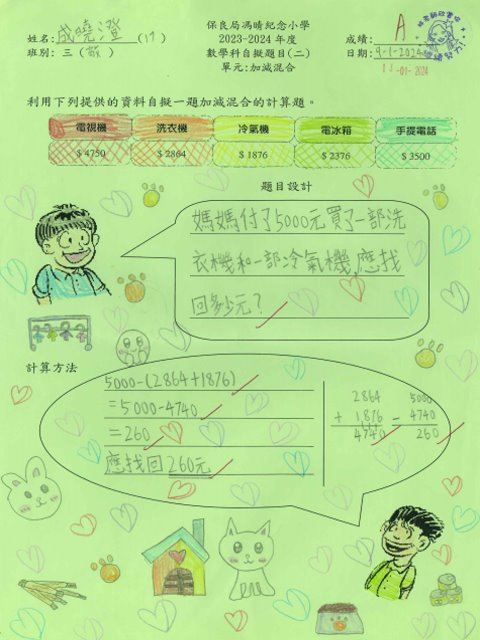 保良局馮晴紀念小學
姓名: 成曉澄 (17) 2023-2024 年度 成績: A
班別: 三 (敬) 數學科自擬題目(二) 日期: 9-1-2024
單元: 加減混合 11-01-2024
利用下列提供的資料自擬一題加減混合的計算題。
電視機 洗衣機 冷氣機 電冰箱 手提電話
$ 4750 $ 2864 $ 1876 $ 2376 $ 3500
題目設計
媽媽付了5000元買了一部洗
衣機和一部冷氣機,應找
回多少元?
計算方法
5000-(2864+1876)
=5000-4740
=260
應找回260元
2864 5000
+ 1876 - 4740
4740 260